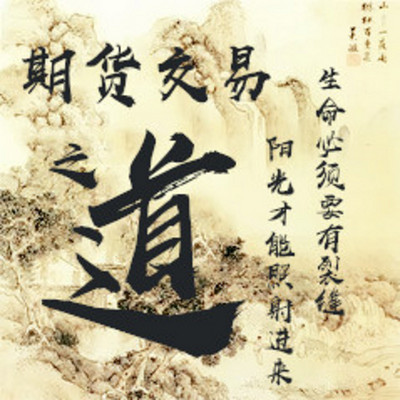 期货交易
之
道
生命必须要有裂缝
阳光才能照射进来